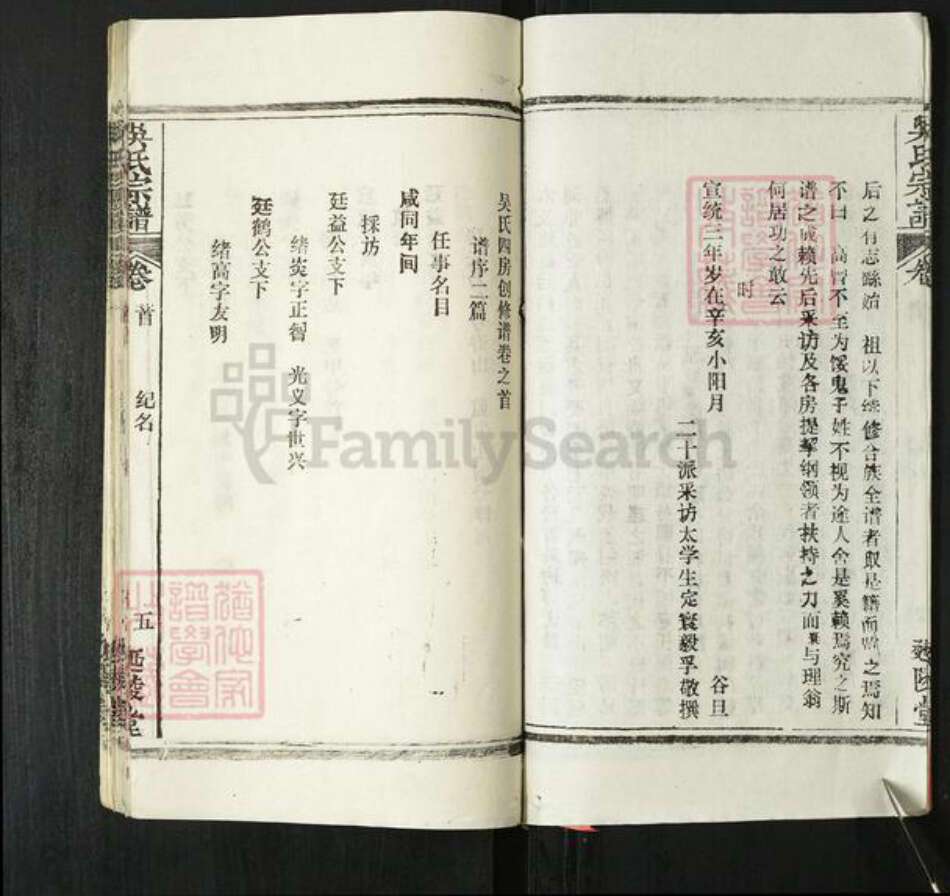 后之有志 祖以下 修合族全谱者取是籍而 之焉知
不曰 高曾不至为馁鬼子姓不视为途人舍是奚赖焉究之斯
谱之成赖先后采访及各房提挈纲领者扶持之力而 与理翁
何居功之敢云
时
宣统三年岁在辛亥小阳月 谷旦
二十派采访太学生定寰毅孚敬撰
吴氏四房创修谱卷之首
谱序二篇
任事名目
咸同年间
採访
廷益公支下
绪炎字正智 光义字世兴
廷鹤公支下
绪高字友明
吴氏宗譜
卷
首
纪名
五
延陵堂
FamilySearch